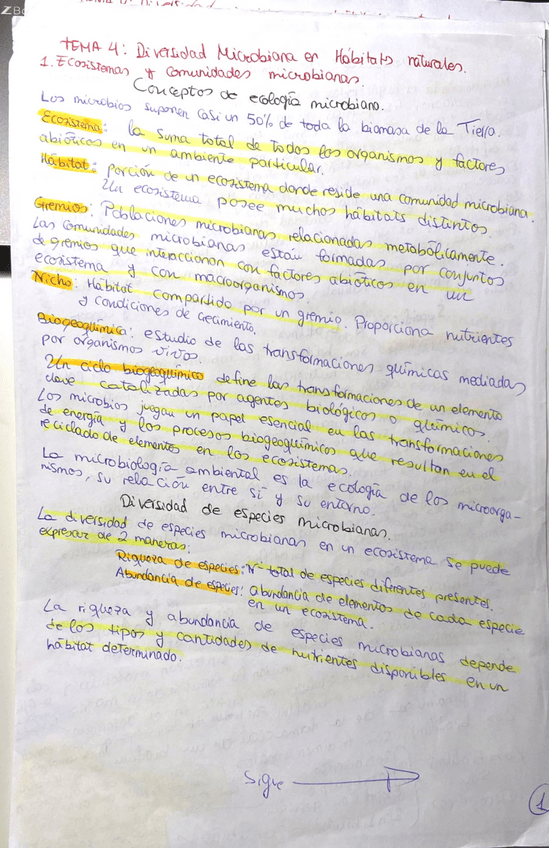 TEMA 4: Diversidad Microbiana en Hábitats naturales.
1. Ecosistemas y comunidades microbianas.
Conceptos de ecología microbiano.
Los microbios suponen casi un 50% de toda la biomasa de la Tierra.
Ecosistema: la suma total de todos los organismos y factores
abióticos en un ambiente particular.
Hábitat: porción de un ecosistema donde reside una comunidad microbiana.
Un ecosistema posee muchos hábitats distintos
Gremios: Poblaciones microbianas relacionadas metabólicamente.
Las comunidades microbianas están formadas por conjuntos
de gremios que interaccionan con factores abióticos en un
ecosistema y con macroorganismos.
Nicho: Hábitat compartido por un gremio. Proporciona nutrientes
y condiciones de crecimiento.
Biogeoquímica: estudio de las transformaciones químicas mediadas
por organismos vivos.
Un ciclo biogeoquímico define las transformaciones de un elemento
clave catalizadas por agentes biológicos o químicos.
Los microbios jugan un papel esencial en las transformaciones
de energía y los procesos biogeoquímicos que resultan en el
reciclado de elementos en los ecosistemas.
La microbiología ambiental es la ecología de los microorga-
nismos, su relación entre sí y su entorno.
Diversidad de especies microbianas.
La diversidad de especies microbianas en un ecosistema se puede
expresar de 2 maneras:
Riqueza de especies: Nº total de especies diferentes presentes.
Abundancia de especies: abundancia de elementos de cada especie
en un ecosistema.
La riqueza y abundancia de especies microbianas depende
de los tipos y cantidades de nutrientes disponibles en un
hábitat determinado.
Sigue
1